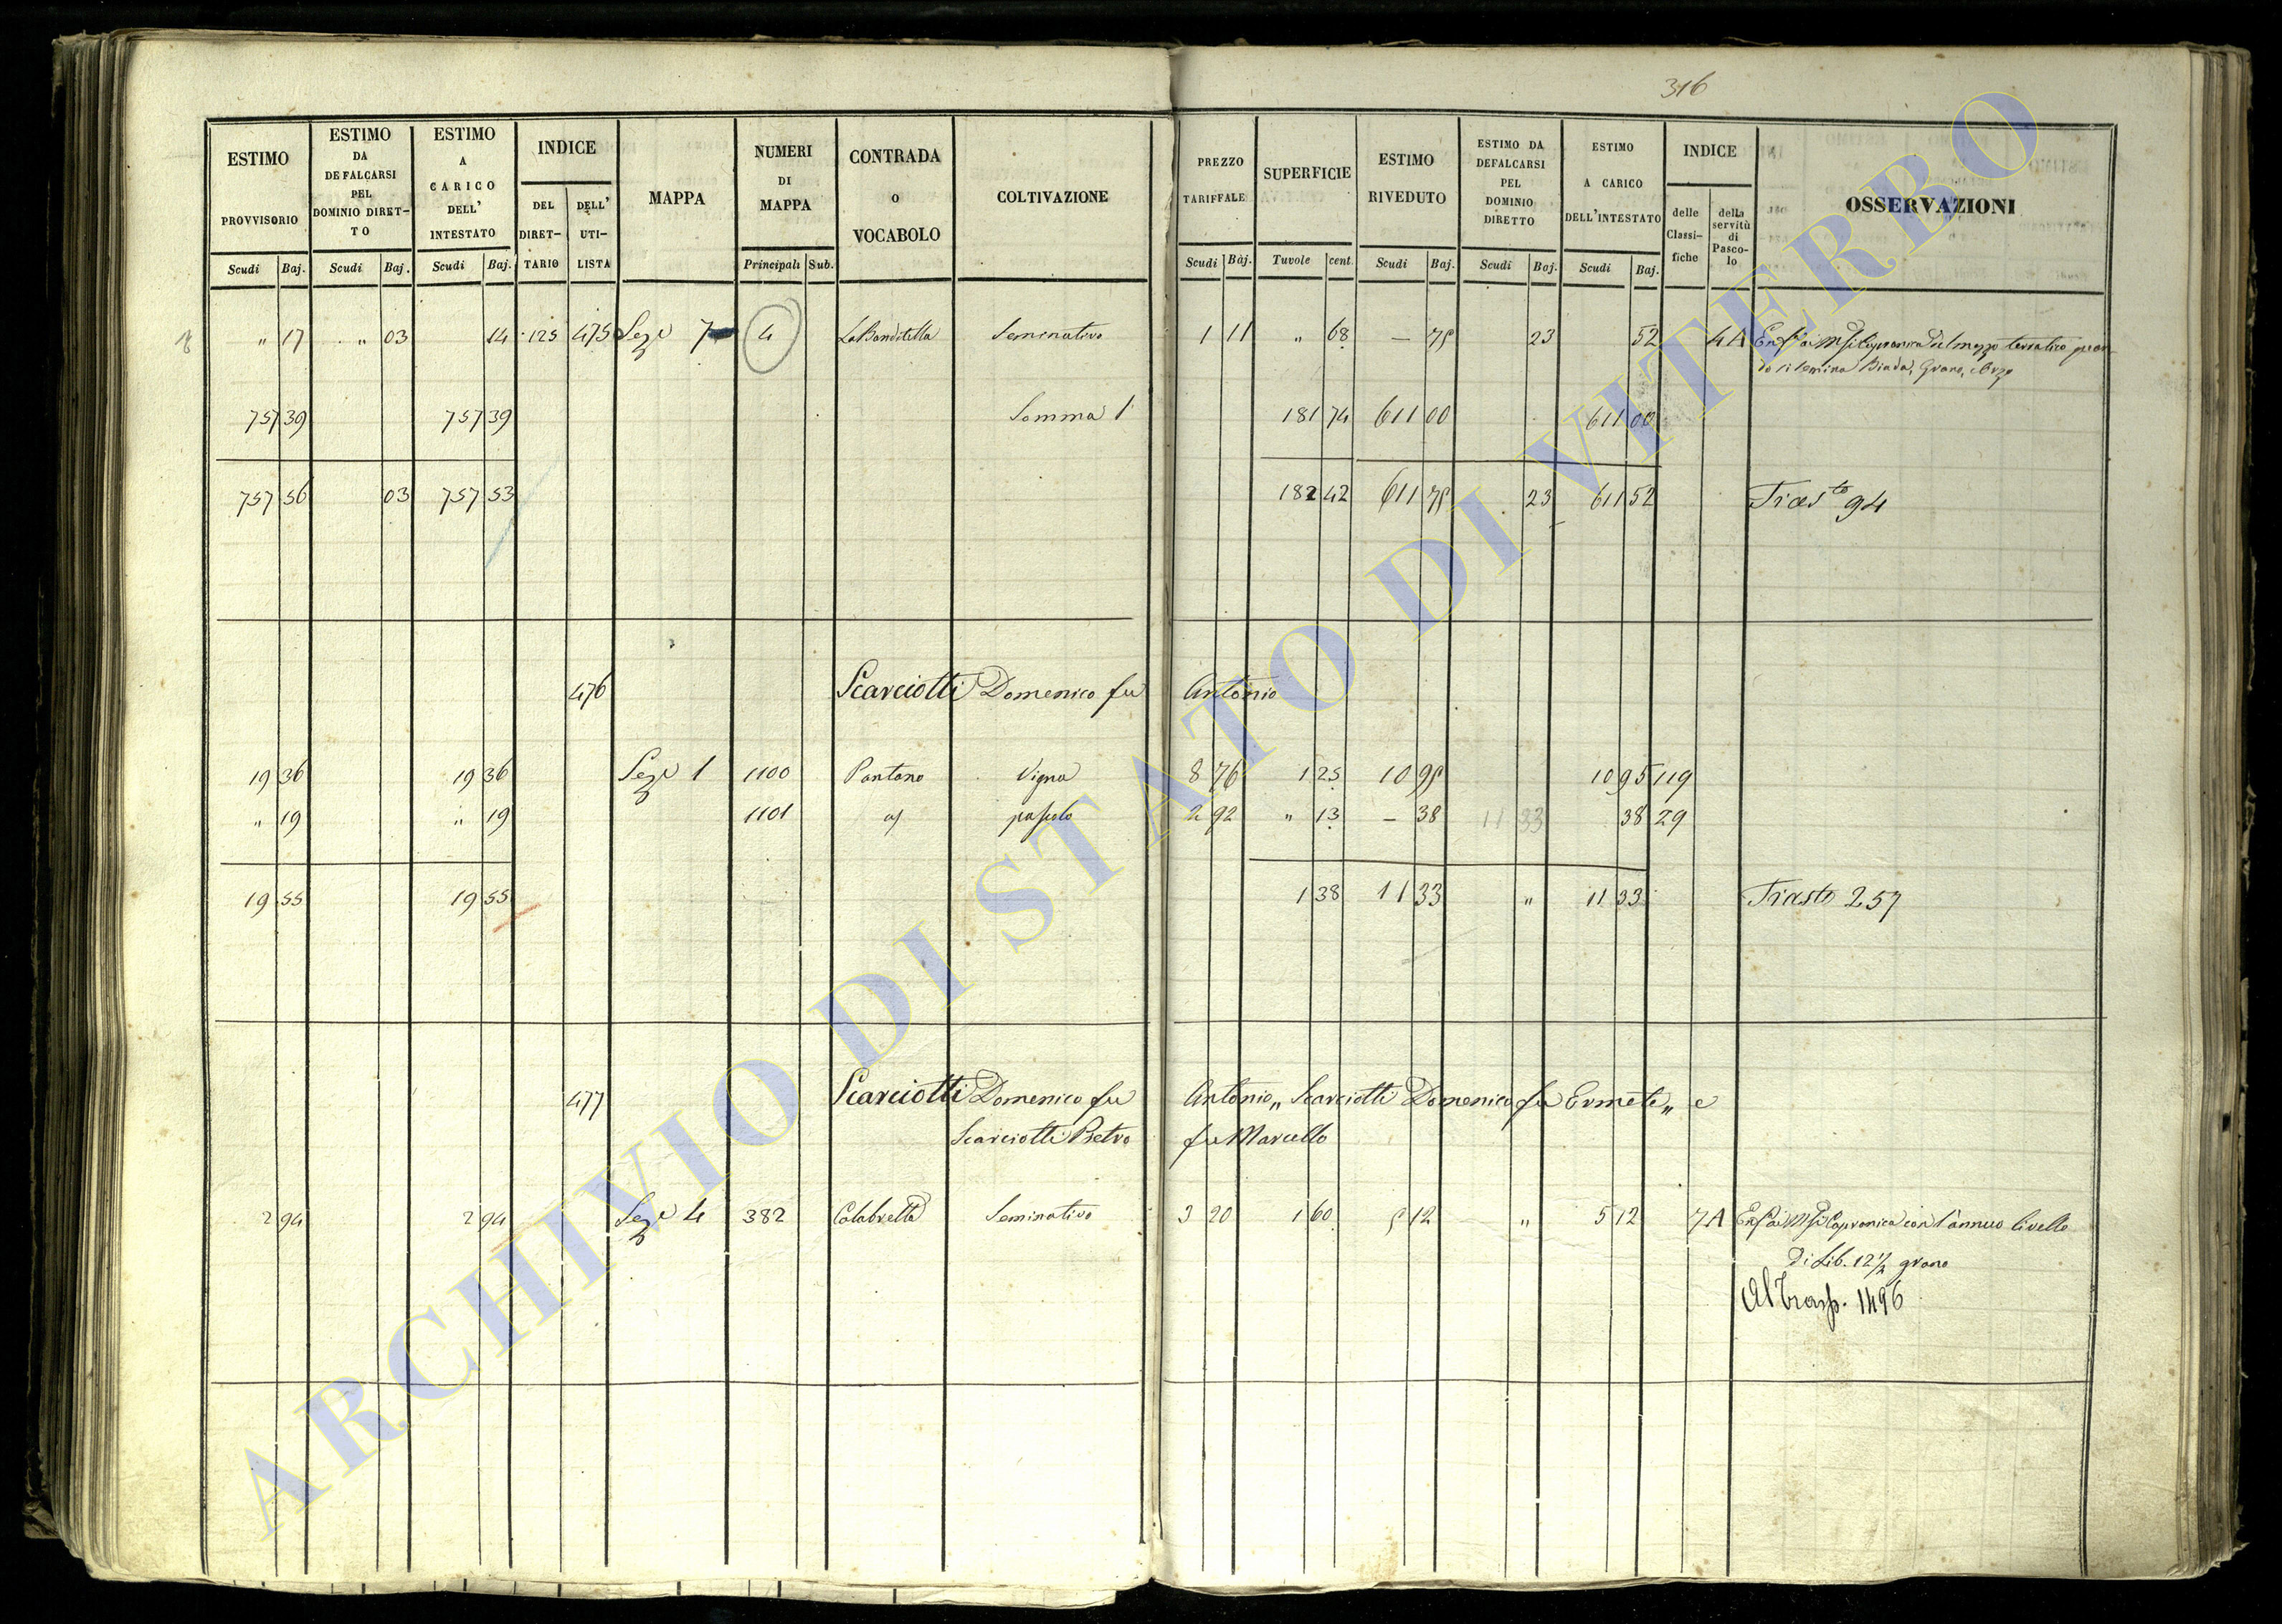 316
ESTIMO PROVVISORIO Scudi Baj.
ESTIMO DA DEFALCARSI PEL DOMINIO DIRET-TO Scudi Baj.
ESTIMO A CARICO DELL' INTESTATO Scudi Baj.
INDICE DEL DIRET-TARIO DELL' UTI-LISTA
MAPPA
NUMERI DI MAPPA Principali Sub.
CONTRADA O VOCABOLO
COLTIVAZIONE
PREZZO TARIFFALE Scudi Baj.
SUPERFICIE Tavole cent.
ESTIMO RIVEDUTO Scudi Baj.
ESTIMO DA DEFALCARSI PEL DOMINIO DIRETTO Scudi Baj.
ESTIMO A CARICO DELL'INTESTATO Scudi Baj.
INDICE delle Classi-fiche della servitù di Pasco-lo
OSSERVAZIONI
" 17 " 03 14 125 475 Seze 7 4 La Banditella Seminativo 1 11 " 68 — 75 23 52 4A
del mezzo terratico quan-
do si semina Biada, Grano, e Orzo
757 39 757 39 Somma 1 181 74 611 00 611 00
757 56 03 757 53 182 42 611 75 23 611 52 Triesto 94
476 Scarciotti Domenico fu Antonio
19 36 19 36 Seze 1 1100 Pantano Vigna 8 76 1 25 10 95 10 95 119
" 19 " 19 1101 pascolo 2 92 " 13 — 38 11 33 38 29
19 55 19 55 1 38 11 33 " 11 33 Triesto 257
477 Scarciotti Domenico fu Antonio „ Scarciotti Domenico fu Ermete „ e
Scarciotti Pietro fu Marcello
2 94 2 94 Seze 4 382 Calabretta Seminativo 3 20 1 60 5 12 " 5 12 7A Capranica con l'annuo livello
di Lib. 12 1/2 grano
Al Trasp. 1496
ARCHIVIO DI STATO DI VITERBO